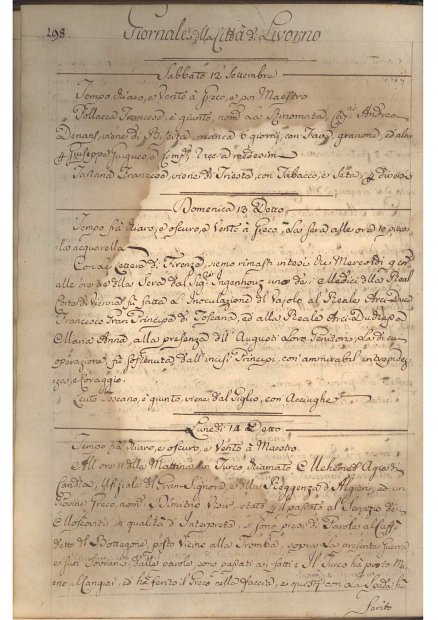 198.
Giornale della Città di Livorno
Sabbato 12 Settembre
Tempo chiaro, e Vento à Greco, e poi Maestro
Pollacca Francese, è giunto, nom.ta La Rinomata Cap.no Andrea
Denans, viene di giorni, con Fava, granone, ed altro
Giuseppe e Comp. e medesimi
Tartana Francese, viene di Trieste, con Tabacco, e Seta, Diversi
Domenica 13 Detto
Tempo frà chiaro, e oscuro, e Vento à Greco, La sera alle ore 10 piccola
acquarella
Con le Lettere di Firenze, siemo rimasti intesi che Mercoldi 9 corr.
alle ore della Sera dal Sig. Ingenhouz uno dei Medici della Real
Corte di Vienna fù fatta L'Inoculazione del Vajolo al Reale Arci-Duca
Francesco Gran Principe di Toscana, ed alla Reale Arci-Duchessa
Maria Anna, alla presenza dell'Augusti Loro Genitori, La di cui
operazione, fù sostenuta dall'encisi Principi, con ammirabil intrepidez-
za, e Coraggio.
Leuto Toscano, è giunto, viene dal Giglio, con Acciughe
Lunedi 14 Detto
Tempo frà chiaro, e oscuro, e Vento à Maestro
All'ore 11 della Mattina un Turco chiamato Mehemed
Ufiziale del Gran Signore, e della Reggenza di Algieri, ed un
Giovine Greco, nom.to Dimitrio stato p. il passato al Servizio de
Moscoviti in qualità d'Interpreta, si sono presi di Parole al Caffè
detto del Bottegone, posto Vicino alla Tromba, sopra La presente Guerra
e suoi Sovrani; dalle parole sono passati ai fatti; Il Turco hà posto Ma-
no al Cangiar, ed hà ferito il Greco nella faccia, e questi con La Spada hà
ferito